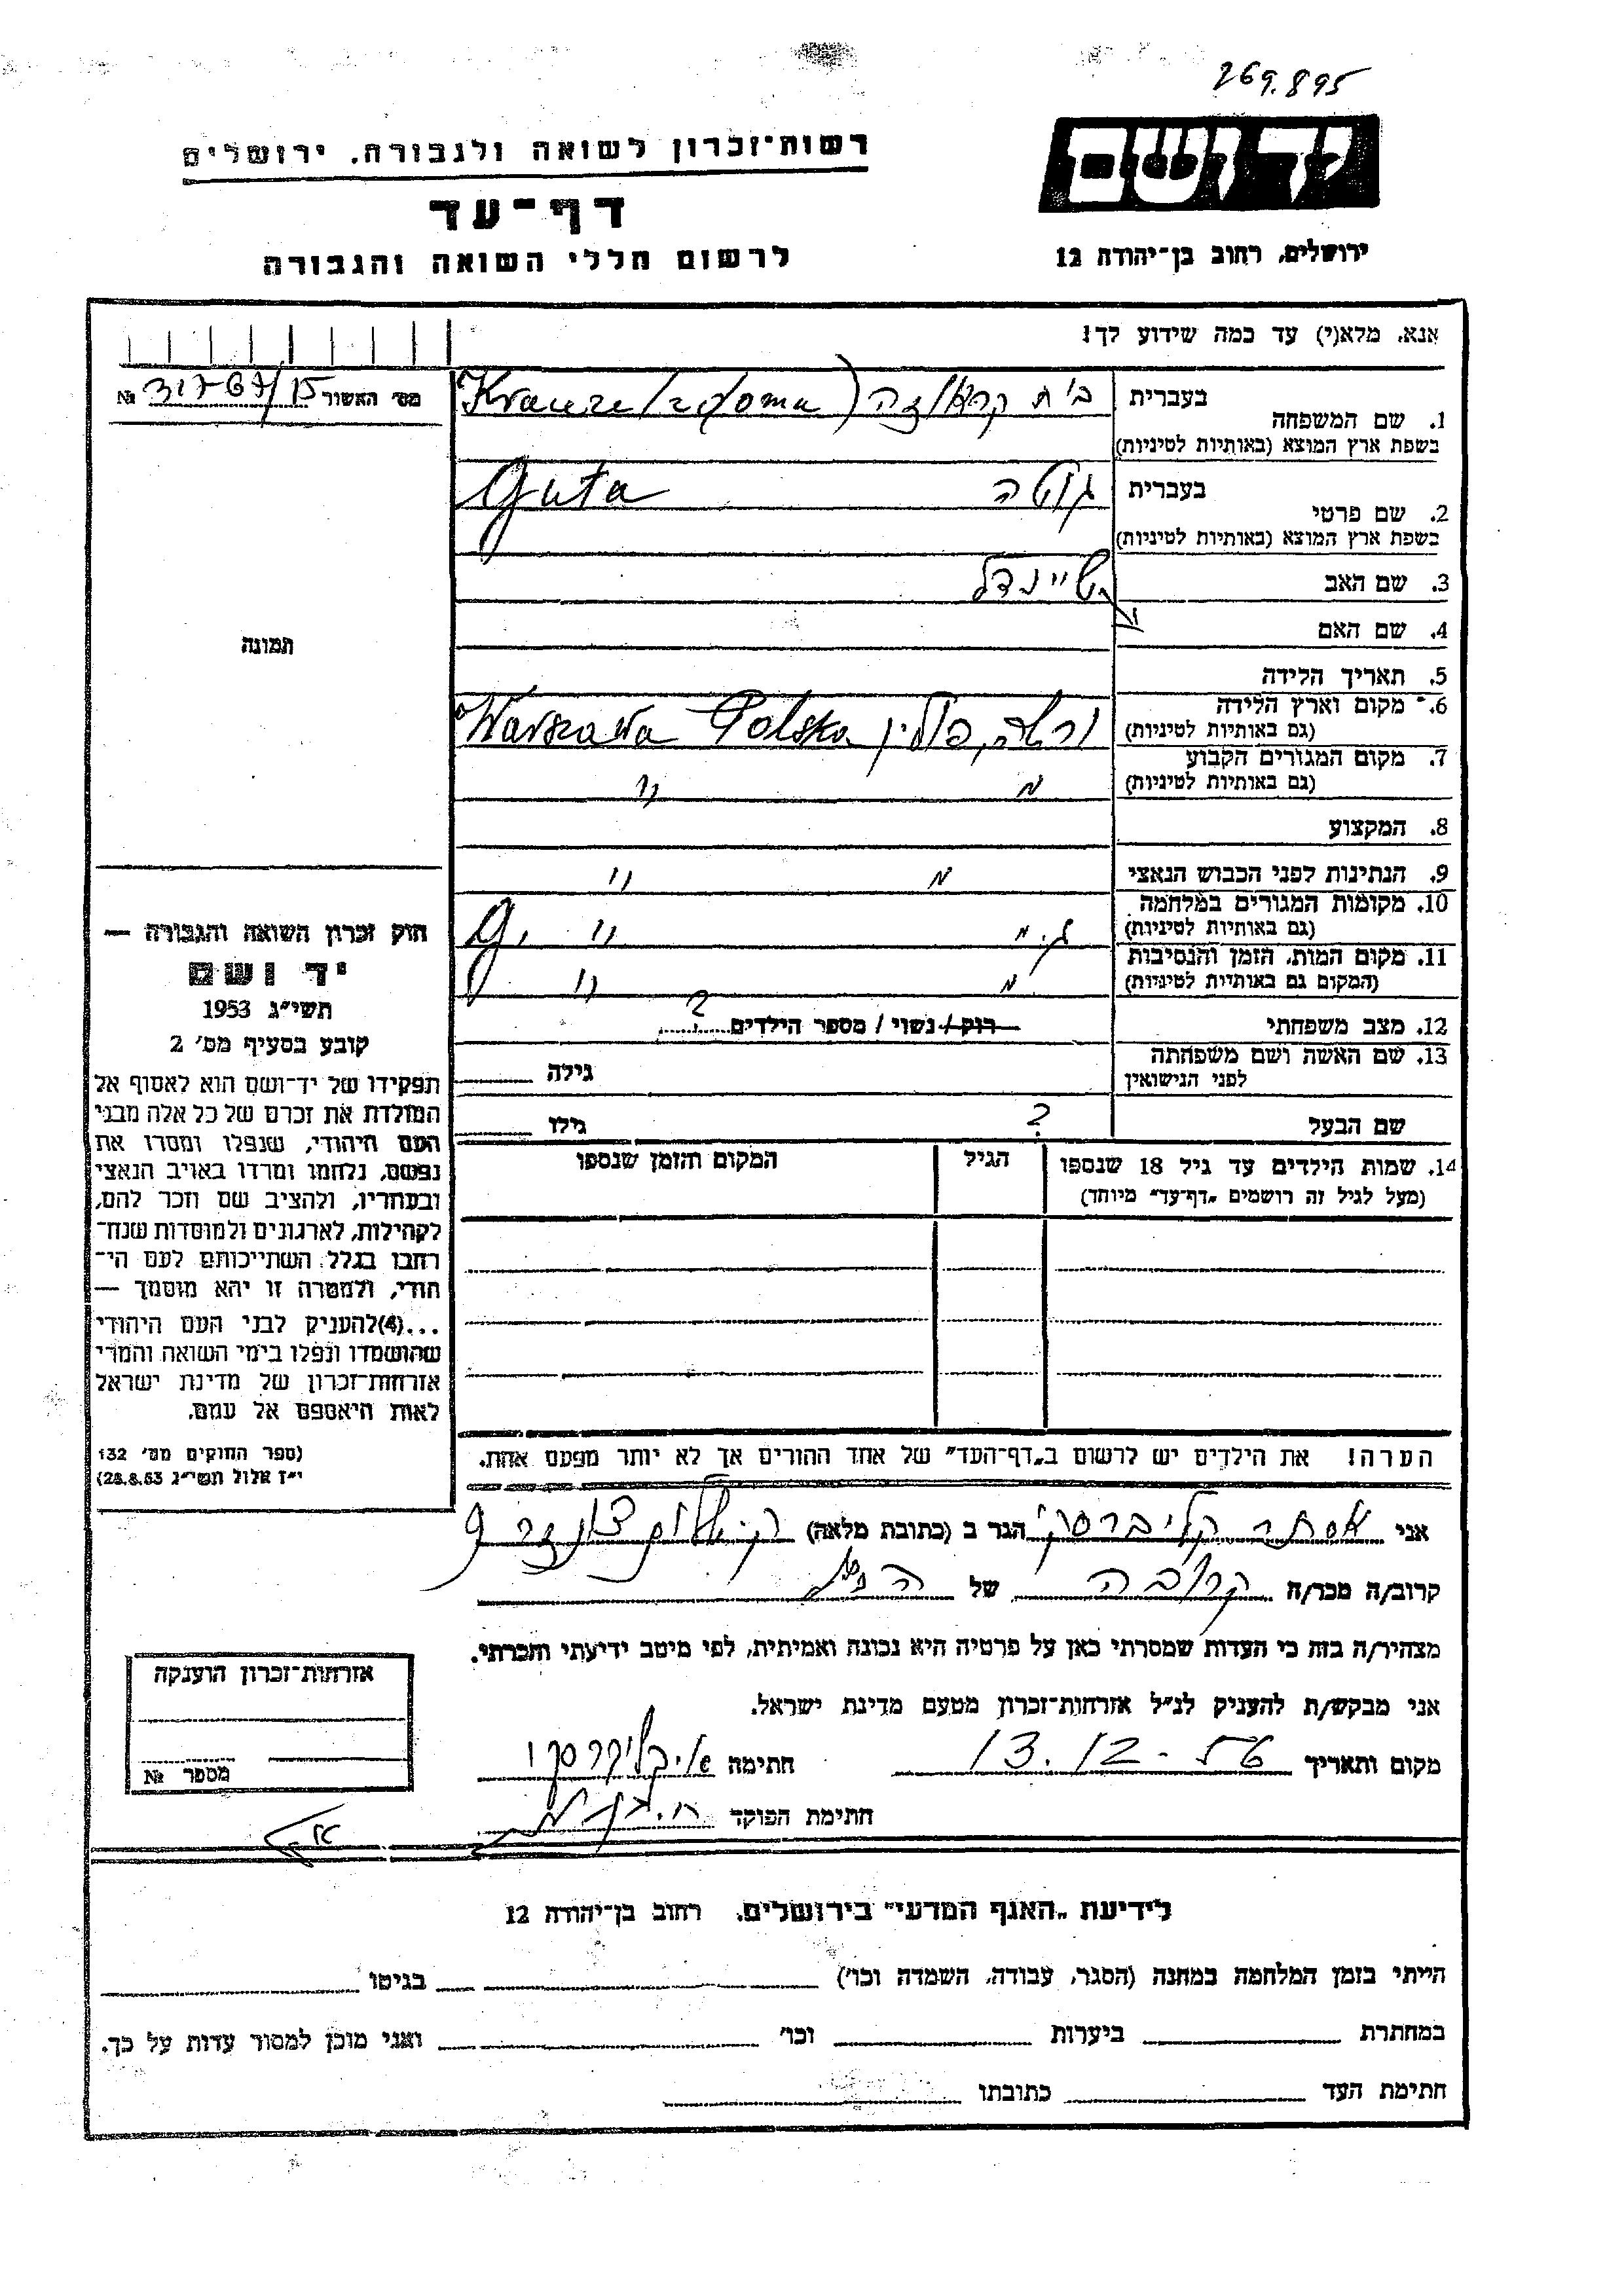 269.895
יד ושם
רשות־זכרון לשואה ולגבורה. ירושלים
דף־עד
לרשום חללי השואה והגבורה
ירושלים, רחוב בן־יהודה 12
אנא, מלא(י) עד כמה שידוע לך!
מס׳ האשור 317-67/15 №
1. שם המשפחה בעברית בית קראוזה (Krauze (z doma
בשפת ארץ המוצא (באותיות לטיניות)
2. שם פרטי בעברית גוטה Guta
בשפת ארץ המוצא (באותיות לטיניות)
3. שם האב שיינדל
4. שם האם
תמונה
5. תאריך הלידה
6. מקום וארץ הלידה ורשה, פולין Warszawa Polska
(גם באותיות לטיניות)
7. מקום המגורים הקבוע
(גם באותיות לטיניות)
8. המקצוע
9. הנתינות לפני הכבוש הנאצי
10. מקומות המגורים במלחמה
(גם באותיות לטיניות)
11. מקום המות, הזמן והנסיבות
(המקום גם באותיות לטיניות)
12. מצב משפחתי רוק / נשוי / מספר הילדים ?
13. שם האשה ושם משפחתה גילה
לפני הנישואין
שם הבעל ? גילו
14. שמות הילדים עד גיל 18 שנספו הגיל המקום והזמן שנספו
(מעל לגיל זה רושמים „דף־עד״ מיוחד)
חוק זכרון השואה והגבורה —
יד ושם
תשי״ג 1953
קובע בסעיף מס׳ 2
תפקידו של יד־ושם הוא לאסוף אל
המולדת את זכרם של כל אלה מבני
העם היהודי, שנפלו ומסרו את
נפשם, נלחמו ומרדו באויב הנאצי
ובעוזריו, ולהציב שם וזכר להם,
לקהילות, לארגונים ולמוסדות שנח־
רבו בגלל השתייכותם לעם הי־
הודי, ולמטרה זו יהא מוסמך —
...(4)להעניק לבני העם היהודי
שהושמדו ונפלו בימי השואה והמרי
אזרחות־זכרון של מדינת ישראל
לאות היאספם אל עמם.
(ספר החוקים מס׳ 132
י״ז אלול תשי״ג 28.8.53)
הערה! את הילדים יש לרשום ב„דף־העד״ של אחד ההורים אך לא יותר מפעם אחת.
אני אסתר קליברסקי הגר ב (כתובת מלאה) 9
קרוב/ה מכר/ה קרובה של הנ״ל
מצהיר/ה בזה כי העדות שמסרתי כאן על פרטיה היא נכונה ואמיתית, לפי מיטב ידיעתי והכרתי.
אני מבקש/ת להעניק לנ״ל אזרחות־זכרון מטעם מדינת ישראל.
מקום ותאריך 13.12.56 חתימה א. קליברסקי
חתימת הפוקד
אזרחות־זכרון הוענקה
מספר №
לידיעת „האגף המדעי״ בירושלים. רחוב בן־יהודה 12
הייתי בזמן המלחמה במחנה (הסגר, עבודה, השמדה וכו׳) בגיטו
במחתרת ביערות וכו׳ ואני מוכן למסור עדות על כך.
חתימת העד כתובתו